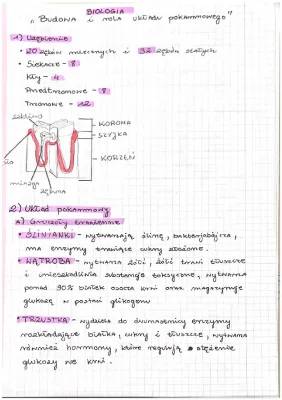 BIOLOGIA
„Budowa i rola układu pokarmowego"
1) Uzębienie
• 20 zębów mlecznych i 32 zębów stałych
• Siekacze - 8
Kły - 4
Przedtrzonowe - 8
Trzonowe - 12
szkliwo
KORONA
SZYJKA
KORZEŃ
miazga
zębina
2) Układ pokarmowy
a) Gruczoły trawienne
• ŚLINIANKI - wytwarzają ślinę, bakteriobójcza,
ma enzymy trawiące cukry złożone.
• WĄTROBA - wytwarza żółć, żółć trawi tłuszcze
i unieszkodliwia substancje toksyczne, wytwarza
ponad 90% białek osocza krwi oraz magazynuje
glukozę w postaci glikogenu
• TRZUSTKA - wydziela do dwunastnicy enzymy
rozkładające białka, cukry i tłuszcze, wytwarza
również hormony, które regulują stężenie
glukozy we krwi.